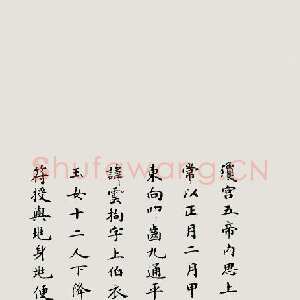 瓊宮五帝內思上
常以正月二月甲
東向叩齒九通平
諱雲拘字上伯衣
玉女十二人下降
符授與兆身兆便
Shufawang.CN